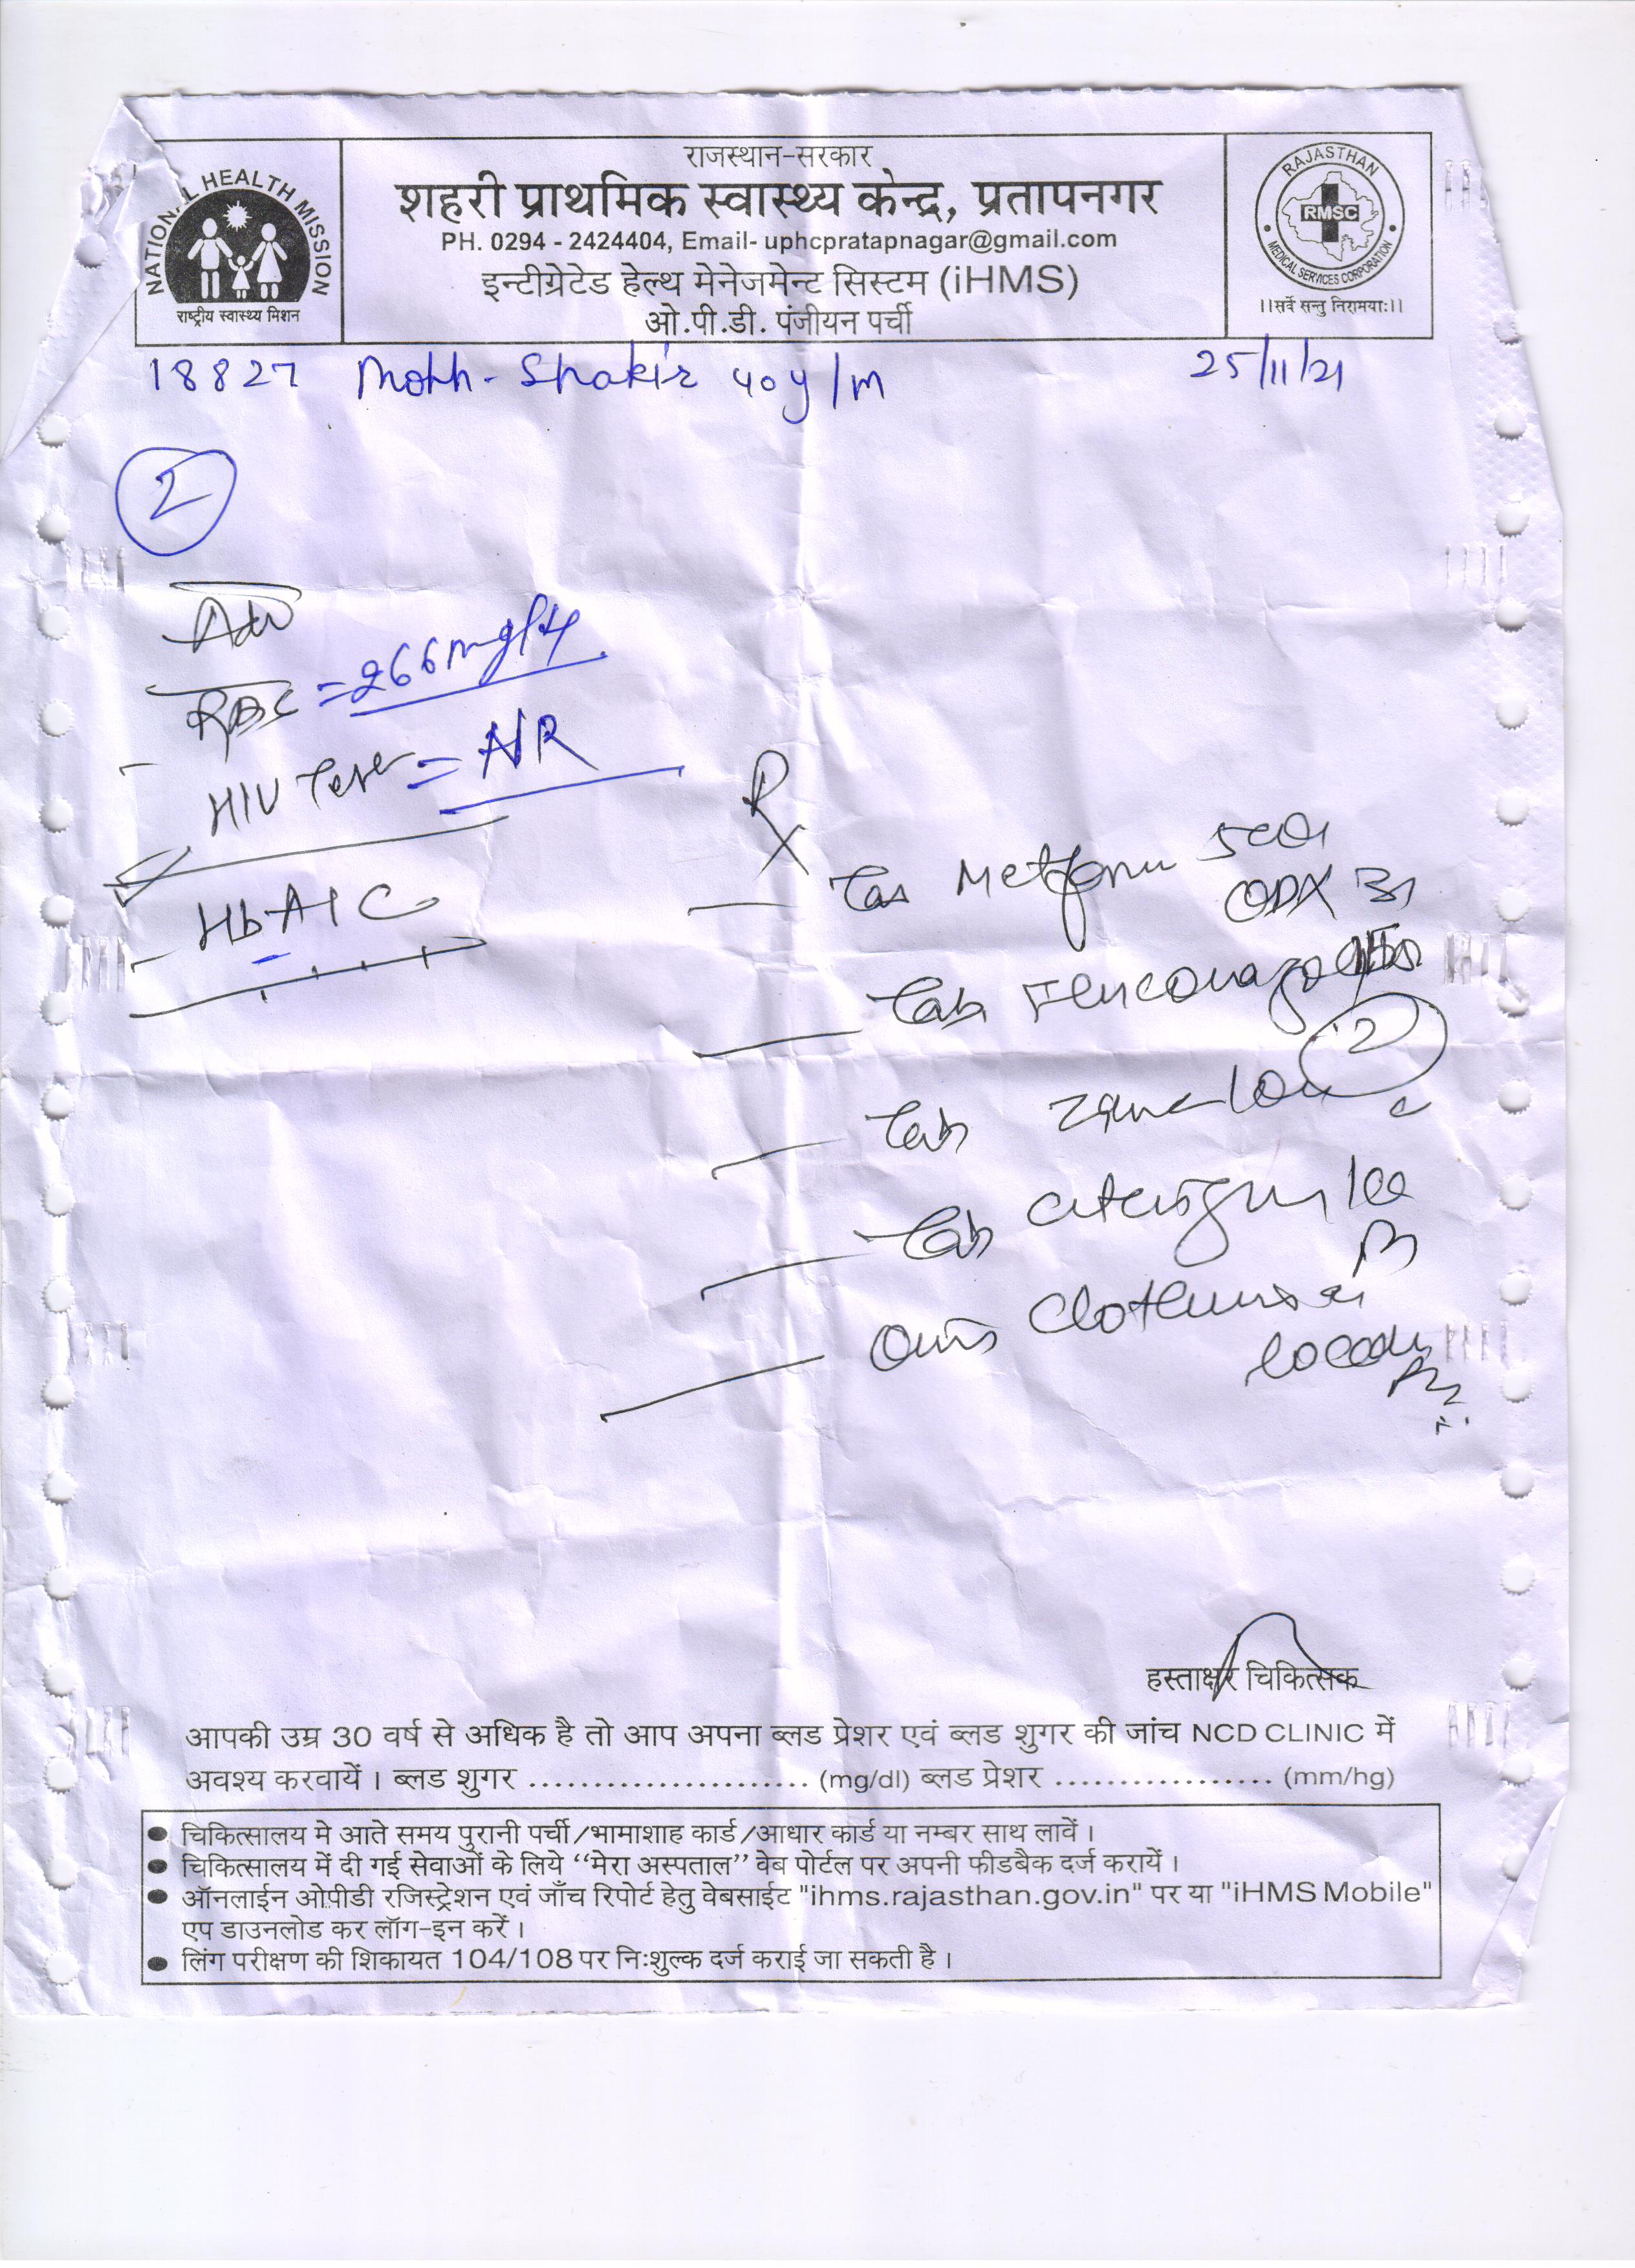 राजस्थान-सरकार
शहरी प्राथमिक स्वास्थ्य केन्द्र, प्रतापनगर
PH. 0294 - 2424404, Email- uphcpratapnagar@gmail.com
इन्टीग्रेटेड हेल्थ मेनेजमेन्ट सिस्टम (iHMS)
ओ.पी.डी. पंजीयन पर्ची
NATIONAL HEALTH MISSION
राष्ट्रीय स्वास्थ्य मिशन
RAJASTHAN
RMSC
MEDICAL SERVICES CORPORATION
।।सर्वे सन्तु निरामयाः।।
18827 Mohh- Shakir 40y/m 25/11/21
2
Adv
RBS = 266mg/
HIV Test = NR
HbA1C
Rx
Tab Metformin 500
OD X
Tab Fluconazole 150
2
Tab
Tab
locally
हस्ताक्षर चिकित्सक
आपकी उम्र 30 वर्ष से अधिक है तो आप अपना ब्लड प्रेशर एवं ब्लड शुगर की जांच NCD CLINIC में
अवश्य करवायें। ब्लड शुगर ........................ (mg/dl) ब्लड प्रेशर .................. (mm/hg)
● चिकित्सालय मे आते समय पुरानी पर्ची/भामाशाह कार्ड/आधार कार्ड या नम्बर साथ लावें।
● चिकित्सालय में दी गई सेवाओं के लिये “मेरा अस्पताल” वेब पोर्टल पर अपनी फीडबैक दर्ज करायें।
● ऑनलाईन ओपीडी रजिस्ट्रेशन एवं जाँच रिपोर्ट हेतु वेबसाईट "ihms.rajasthan.gov.in" पर या "iHMS Mobile"
एप डाउनलोड कर लॉग-इन करें।
● लिंग परीक्षण की शिकायत 104/108 पर निःशुल्क दर्ज कराई जा सकती है।